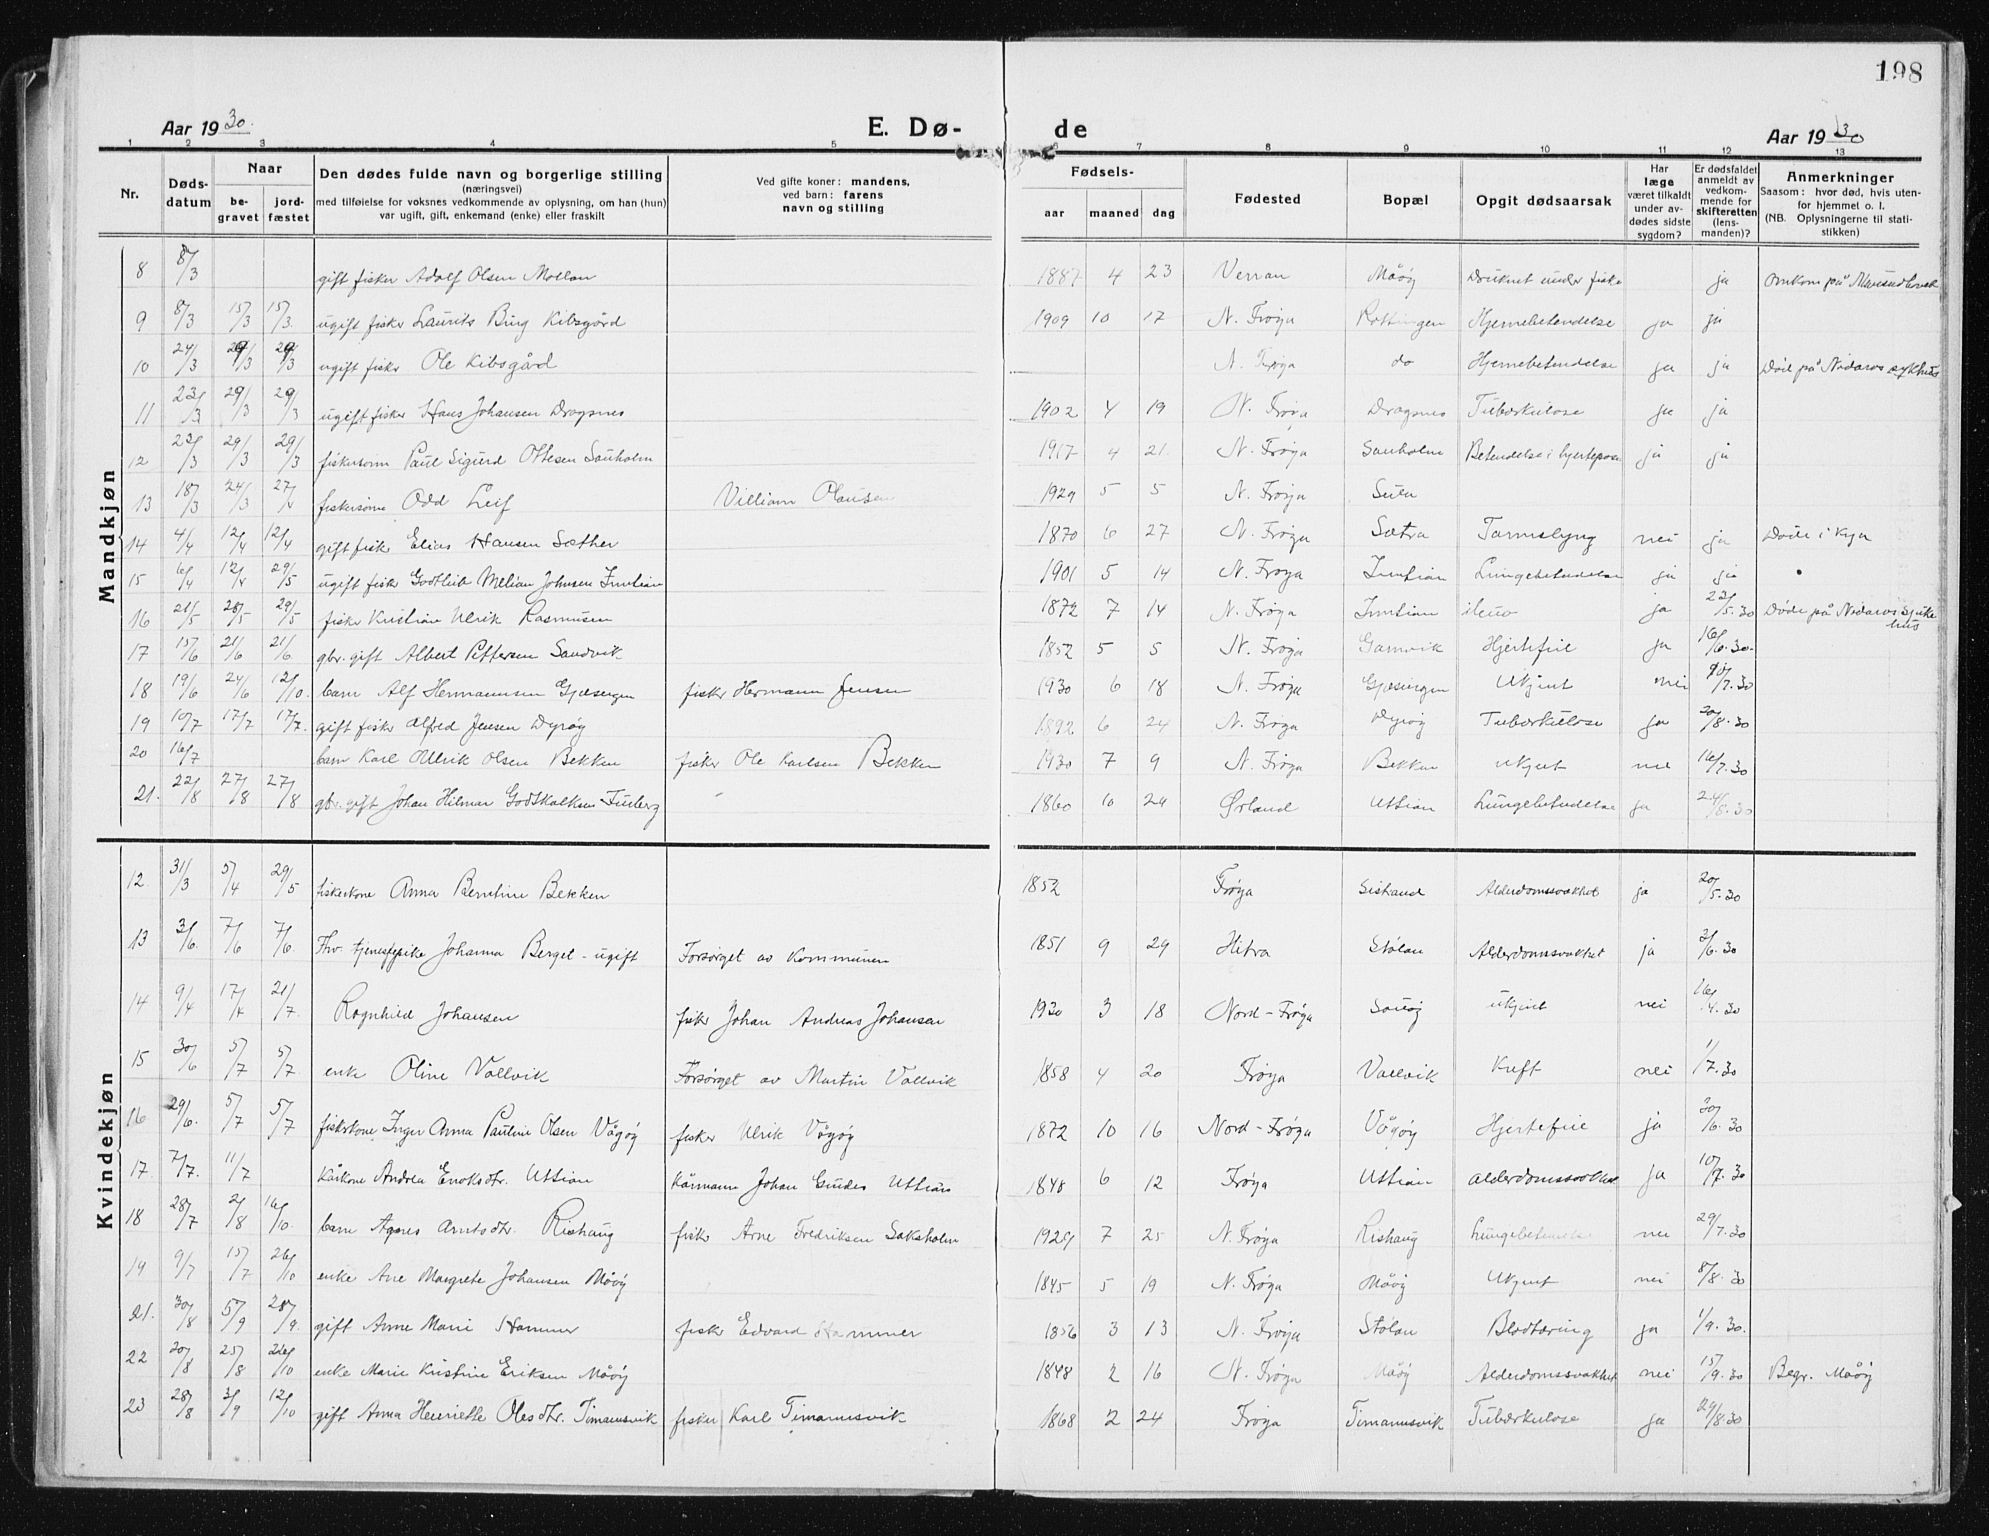 198
Aar 1930. E. Dø- de Aar 1930
1 2 3 4 5 6 7 8 9 10 11 12 13
Nr. Døds-datum Naar be-gravet jord-fæstet Den dødes fulde navn og borgerlige stilling (næringsvei) med tilføielse for voksnes vedkommende av oplysning, om han (hun) var ugift, gift, enkemand (enke) eller fraskilt Ved gifte koner: mandens, ved barn: farens navn og stilling Fødsels- aar maaned dag Fødested Bopæl Opgit dødsaarsak Har læge været tilkaldt under av-dødes sidste sygdom? Er dødsfaldet anmeldt av vedkom-mende for skifteretten (lens-manden)? Anmerkninger Saasom: hvor død, hvis uten-for hjemmet o. l. (NB. Oplysningerne til stati-stikken)
Mandkjøn
8 8/3 gift fisker Adolf Olsen Mollan 1887 4 23 Verran Måöy Druknet under fiske ja Omkom på
9 8/3 15/3 15/3 ugift fisker Laurits Bing Kibsgård 1909 10 17 N. Frøya Rottingen Hjernebetendelse ja ja
10 24/3 29/3 29/3 ugift fisker Ole Kibsgård N. Frøya do Hjernebetendelse ja ja Död på Nidaros sykhus
11 23/3 29/3 29/3 ugift fisker Hans Johansen Dragsnes 1902 4 19 N. Frøya Dragsnes Tuberkulose ja ja
12 23/3 29/3 29/3 fiskersönn Paul Sigurd Ottesen Sauholm 1917 4 21 N. Frøya Sauholm Betendelse i hjertepose ja ja
13 18/3 24/3 27/4 fiskersönn Odd Leif Villiam Olausen 1929 5 5 N. Frøya Sula
14 4/4 12/4 12/4 gift fisker Elias Hansen Sæther 1870 6 27 N. Frøya Sætra Tarmslyng nei ja Døde i Kya
15 6/4 12/4 29/5 ugift fisk Godtlib Melian Johnsen Inntian 1901 5 14 N. Frøya Inntian Lungebetendelse ja ja
16 21/5 28/5 29/5 fisker Kristian Ulrik Rasmusen 1872 7 14 N. Frøya Inntian ileus ja 23/5.30 Døde på Nidaros sjukehus
17 15/6 21/6 21/6 gbr. gift Albert Pettersen Sandvik 1852 5 5 N. Frøya Gamvik Hjertefeil ja 16/6.30.
18 19/6 24/6 12/10. barn Alf Hermannsen Gjæsingen fisker Hermann Jensen 1930 6 18 N. Frøya Gjæsingen Ukjent nei 10/7.30
19 10/7 17/7 17/7. gift fisker Alfred Jensen Dyröy 1892 6 24 N. Frøya Dyröy Tuberkulose ja 20/8.30
20 16/7 barn Karl Ollrik Olsen Bekken fisker Ole Karlsen Bekken 1930 7 9 N. Frøya Bekken ukjent nei 16/7.30
21. 22/8 27/8 27/8 gbr. gift Johan Hilmar Godtskalksen Finberg 1860 10 29 Ørland Uttian Lungebetendelse ja 24/8.30
Kvindekjøn
12 31/3 5/4 29/5 fiskerkone Anna Berntine Bekken 1852 Frøya Sistrand Alderdomssvakhet ja 20/5.30
13 3/6. 7/6 7/6. Fhv. tjenestepike Johanna Berget - ugift Forsörget av Kommunen 1851 9 29 Hitra Stölan Alderdomssvakhet ja 3/6.30
14 9/4 17/4 21/7. Ragnhild Johansen fisker Johan Andreas Johansen 1930 3 18 Nord-Frøya Sauöy ukjent nei 16/4.30
15 30/6 5/7 5/7. enke Oline Vallvik Forsörget av Martin Vallvik 1858 4 20 Frøya Vallvik Kreft nei 1/7.30
16 29/6. 5/7 5/7 fiskerkone Inger Anna Pauline Olsen Vågöy fisker Ulrik Vågöy 1872 10 16 Nord-Frøya Vågöy Hjertefeil ja 30/6.30
17 7/7. 11/7 Kårkone Andrea Enoksdtr. Uttian Kårmann Johan Uttian 1848 6 12 Frøya Uttian alderdomssvakhet ja 10/7.30
18 28/7 2/8 16/10. barn Agnes Arntsdtr. Rishaug fisker Arne Fredriksen Saksholm 1929 7 25 N. Frøya Rishaug Lungebetendelse nei 29/7.30
19 9/7 15/7 26/10 enke Ane Margrete Johansen Måöy 1845 5 19 N. Frøya Måöy Ukjent nei 8/8.30
21. 30/8 5/9 28/9. gift Anne Marie Hammer fisker Edvard Hammer 1856 3 13 N. Frøya Stölan Blodtæring ja 1/9.30.
22 20/8 25/8 26/10 enke Marie Kristine Eriksen Måöy 1848 2 16 N. Frøya Måöy Alderdomssvakhet nei 15/9.30 Begr. Måöy
23 28/8 3/9 12/10 gift Anna Henriette Olesdtr. Timannsvik fisker Karl Timannsvik 1868 2 24 Frøya Timannsvik Tuberkulose ja 29/8.30